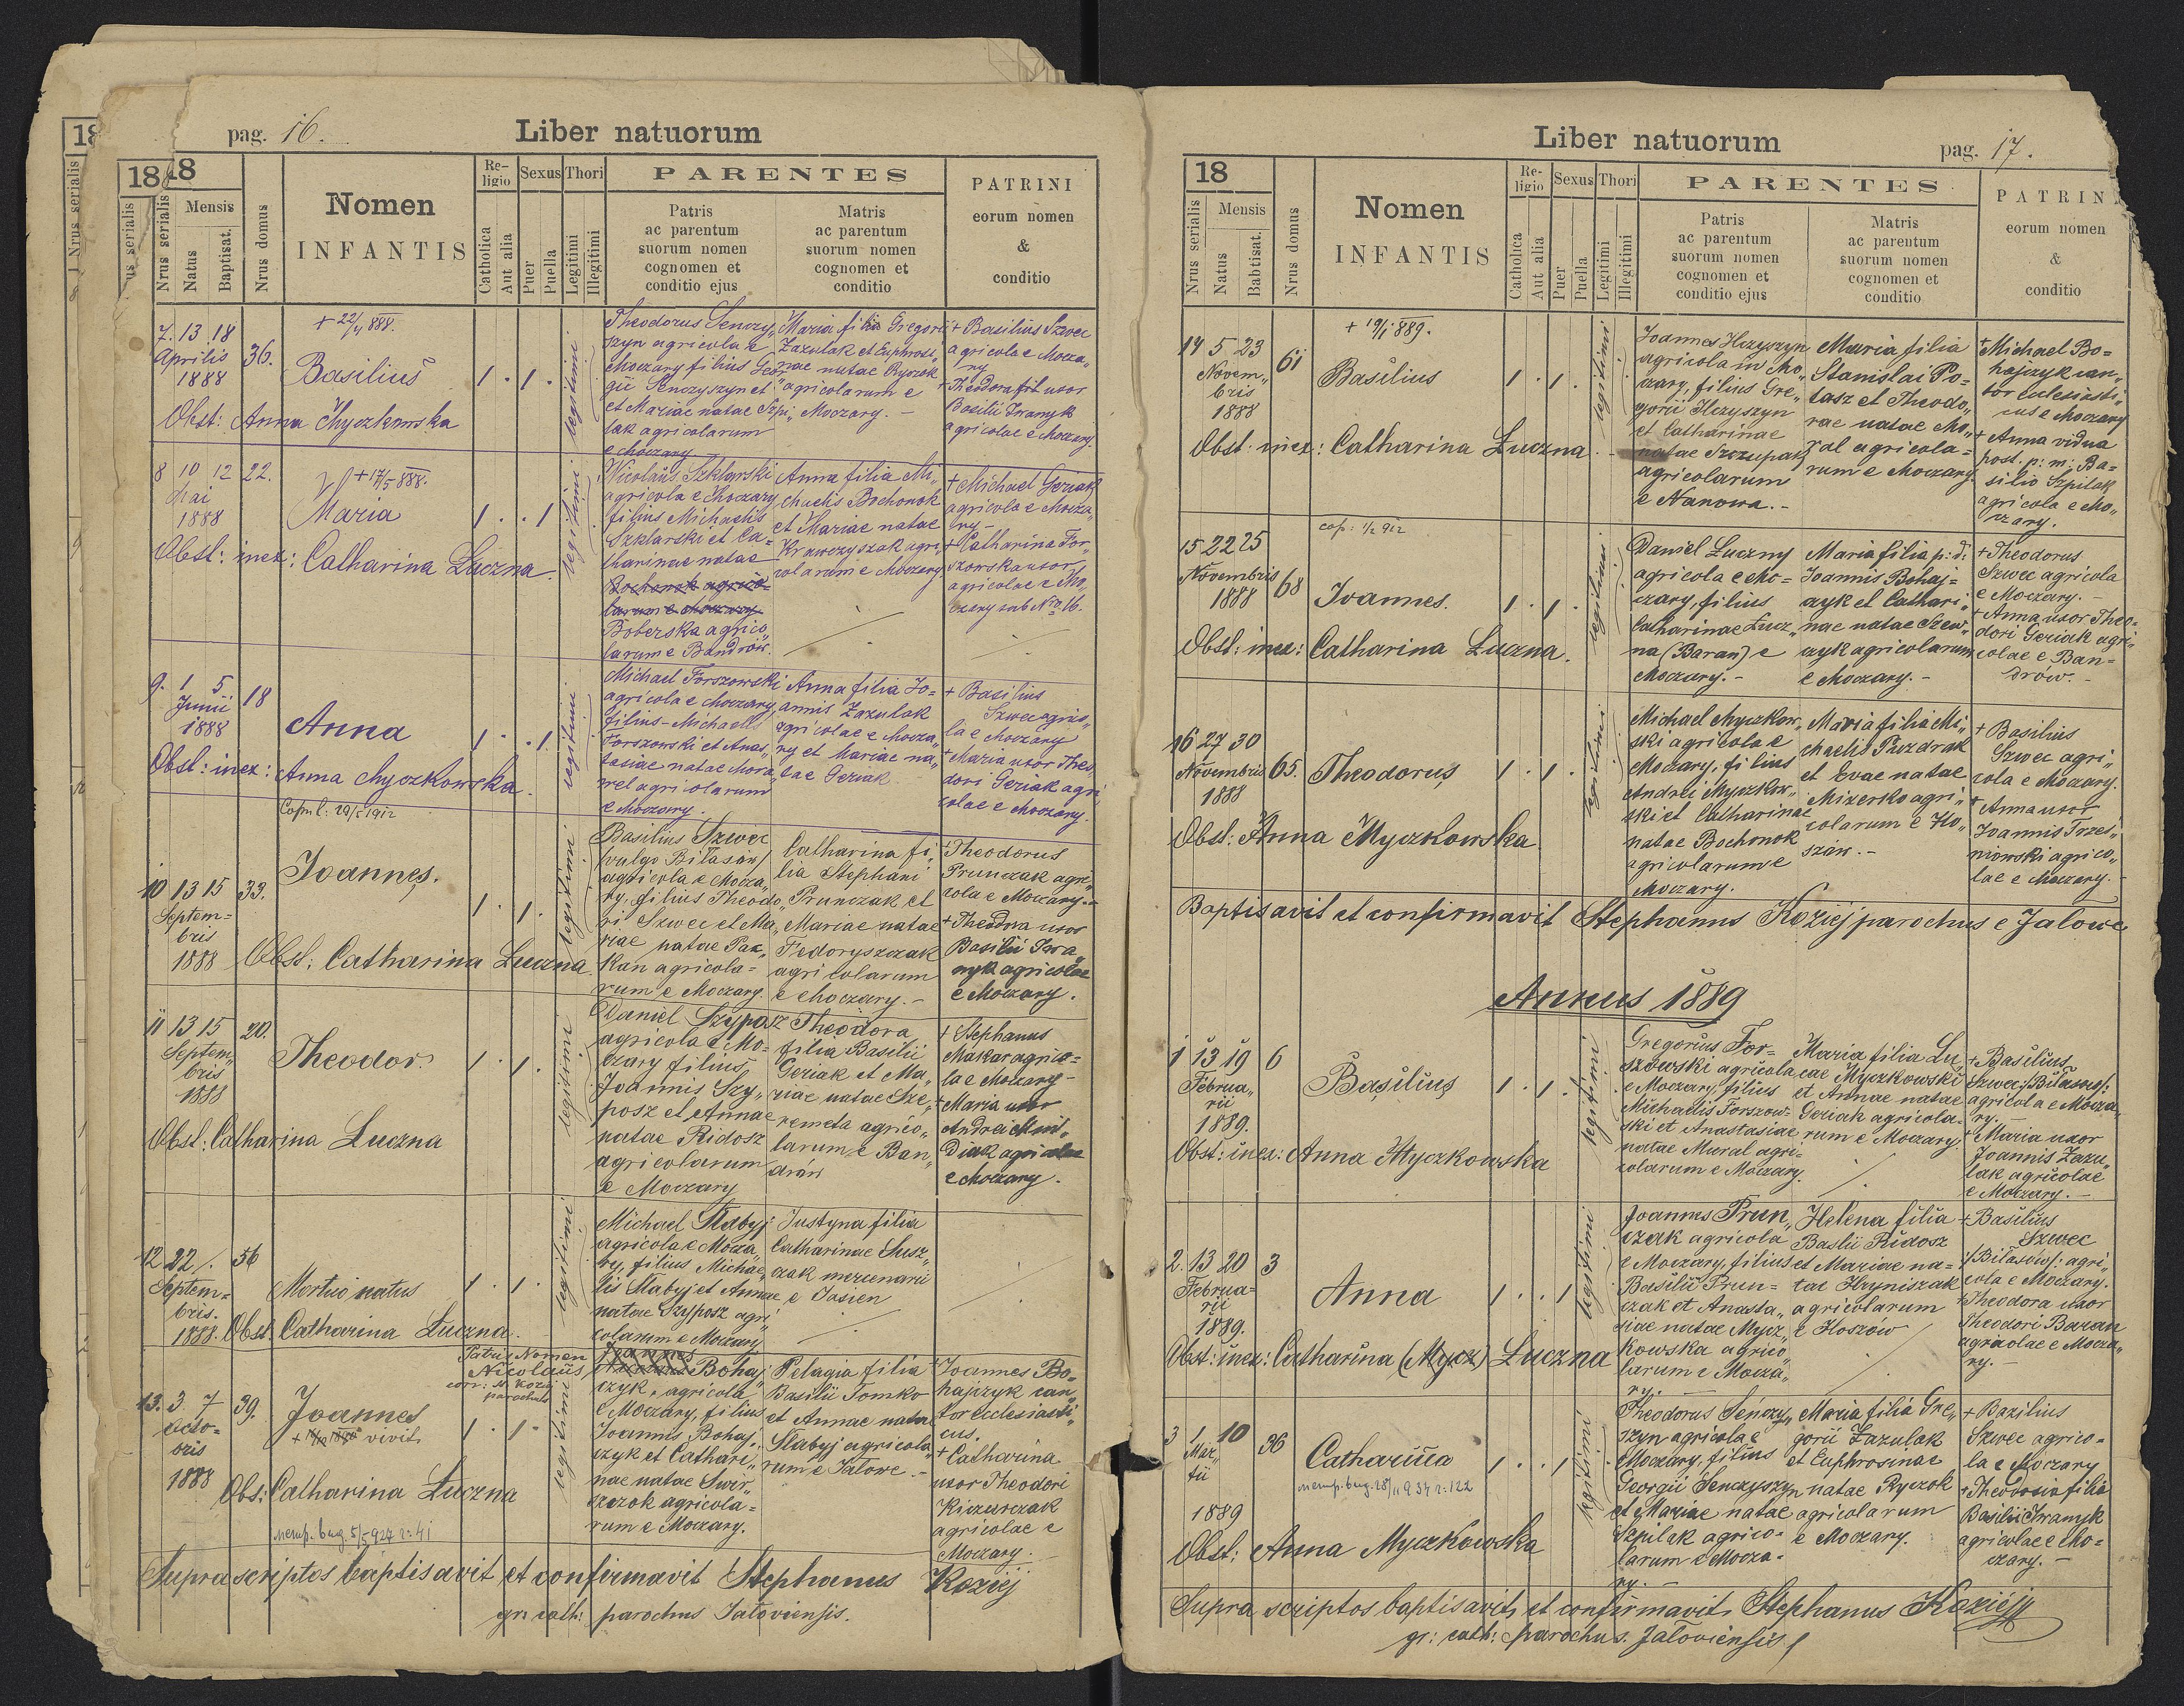 pag. 16.
Liber natuorum
1888
Nrus serialis
Mensis
Natus
Baptisat.
Nrus domus
Nomen
INFANTIS
Religio
Catholica
Aut alia
Sexus
Puer
Puella
Thori
Legitimi
Illegitimi
PARENTES
Patris
ac parentum
suorum nomen
cognomen et
conditio ejus
Matris
ac parentum
suorum nomen
cognomen et
conditio
PATRINI
eorum nomen
&
conditio
7. 13 18
Aprilis
1888
36.
+ 22/4 888.
Basilius
1 . 1 .
legitimi
Obst: Anna Myczkowska
Theodorus Senczy„
szyn agricola e
Moczary filius Geor
gii Senczyszyn et
et Mariae natae Szpi„
lak agricolarum
e Moczary
Maria filia Gregorii
Zazulak et Euphrosi„
nae natae Ryczok
agricolarum e
Moczary. –
+ Basilius Szwec
agricola e Mocza„
ry
Basilii Iwanyk
agricolae e Moczary.
8 10 12
Mai
1888
22.
+ 17/5 888.
Maria
1 . . 1
legitimi
Obst: inex: Catharina Luczna.
Nicolaus Szklarski
agricola e Moczary
filius Michaelis
Szklarski et Ca=
tharinae natae
Bochonok agrico=
larum e Moczary
Boberska agrico„
larum e Bandrów.
Anna filia Mi„
chaelis Bochonok
et Mariae natae
Krawczyszak agri„
colarum e Moczary
+ Michael Geziak
agricola e Mocza„
ry –
+ Catharina For„
szowska uxor
agricolae e Mo„
czary sub Nro 16.
9. 1 5
Junii
1888
18
Anna
1 . . 1.
legitimi
Obst: inex: Anna Myczkowska.
Michael Forszowski
agricola e Moczary
filius Michaelis
Forszowski et Anas„
tasiae natae Mora„
wel agricolarum
e Moczary.
Anna filia Jo=
annis Zazulak
agricolae e Mocza„
ry et Mariae na„
tae Geziak
+ Basilius
Szwec agrico„
la e Moczary
+ Maria uxor Theo
dori Geziak agri
colae e Moczary.
Copul: 29/5 1912
10 13 15
Septem=
bris
1888
33.
Joannes.
1 . 1 .
legitimi
Obst: Catharina Luczna.
Basilius Szwec
(vulgo Bilasów)
agricola e Mocza„
ry, filius Theodo„
ri Szwec et Ma„
riae natae Pan„
kan agricola=
rum e Moczary.
Catharina fi„
lia Stephani
Prunczak et
Mariae natae
Fedoryszczak
agricolarum
e Moczary. –
+ Theodorus
Prunczak agri„
cola e Moczary. –
+ Theodora uxor
Basilii Iwa„
nyk agricolae
e Moczary.
11 13 15
Septem„
bris
1888
20.
Theodor.
1 . 1 .
legitimi
Obst: Catharina Luczna
Daniel Szyposz
agricola e Mo=
czary filius
Joannis Szy„
posz et Annae
natae Ridosz
agricolarum
e Moczary
Theodora
filia Basilii
Geziak et Ma„
riae natae Sze„
remeta agrico„
larum e Ban„
drów
+ Stephanus
Makar agrico=
la e Moczary –
+ Maria uxor
Andrei Min„
Diak agricolae
e Moczary.
12 22 /.
Septem=
bris.
1888.
56
Mortuo natus
1 . 1 .
legitimi
Obst: Catharina Luczna.
Michael Slabyj
agricola e Mocza„
ry, filius Michae„
lis Slabyj et Annae
natae Szyposz agri„
colarum e Moczary
Justyna filia
Catharinae Susz„
czak mercenarii
e Jasien
Patris Nomen
Nicolaus
corr: St Koziej
parochus
13. 3 7
Octo=
bris
1888
39.
Joannes
vivit
1 . 1 .
legitimi
Obs: Catharina Luczna
Joannes
Bohaj„
czyk, agricola
e Moczary, filius
Joannis Bohaj„
czyk et Cathari„
nae natae Swir„
szczok agricola=
rum e Moczary.
Pelagia filia
Basilii Tomko
et Annae natae
Slabyj agricola„
rum e Jalowe. –
Joannes Bo=
hajczyk can„
tor ecclesiasti„
cus.
+ Catharina
uxor Theodori
agricolae e
Moczary.
Supra scriptos baptisavit et confirmavit Stephanus Koziej
gr: cath: parochus Jaloviensis.
Liber natuorum
pag. 17.
18
Nrus serialis
Mensis
Natus
Babtisat.
Nrus domus
Nomen
INFANTIS
Religio
Catholica
Aut alia
Sexus
Puer
Puella
Thori
Legitimi
Illegitimi
PARENTES
Patris
ac parentum
suorum nomen
cognomen et
conditio ejus
Matris
ac parentum
suorum nomen
cognomen et
conditio
PATRIN
eorum nomen
&
conditio
14 5 23
Novem„
bris
1888
61
+ 19/1 889.
Basilius
1 . 1 .
legitimi
Obst: inex: Catharina Luczna. –
Joannes Hryszyn
agricola in Mo„
czary, filius Gre„
gorii Hryszyn
et Catharinae
natae Szczupak
agricolarum
e Nanowa. –
Maria filia
Stanislai Po=
tasz et Theodo„
rae natae Mo„
ral agricola=
rum e Moczary.
+ Michael Bo=
hajczyk can„
tor eclesiasti„
cus e Moczary
+ Anna vidua
post. p: m: Ba=
silio Szpilak
agricola e Mo„
czary.
15 22 25
Novembris
1888
68
cop: 1/2 912
Joannes.
1 . 1 .
legitimi
Obst: inex: Catharina Luczna.
Daniel Luczny
agricola e Mo=
czary, filius
Catharinae Lucz„
na (Baran) e
Moczary. –
Maria filia p: d:
Joannis Bohaj=
czyk et Cathari„
nae natae Szew„
czyk agricolarum
e Moczary. –
+ Theodorus
Szwec agricola
e Moczary. –
+ Anna uxor Theo=
dori Geziak agri„
colae e Ban=
drów. –
16 27 30
Novembris
1888
65.
Theodorus
1 . 1 .
legitimi
Obst: Anna Myczkowska
Michael Myczkow„
ski agricola e
Moczary, filius
Andrei Myczkow„
ski et Catharinae
natae Bochonok
agricolarum e
Moczary.
Maria filia Mi„
chaelis Puzdrak
et Evae natae
Mizersko agri„
colarum e Ho„
szów. –
+ Basilius
Szwec agri„
cola e Moczary.
+ Anna uxor
Joannis Trzes„
niowski agrico„
lae e Moczary. –
Baptisavit et confirmavit Stephanus Koziej parochus e Jalowe
Annus 1889
1 13 19
Februa„
rii
1889.
6
Basilius
1 . 1 .
legitimi
Obst: inex: Anna Myczkowska
Gregorius For=
szowski agricola
e Moczary, filius
Michaelis Forszow=
ski et Anastasiae
natae Mural agri=
colarum e Moczary.
Maria filia Lu„
cae Myczkowski
et Annae natae
Geziak agricola=
rum e Moczary.
+ Basilius
Szwec /: Bilasow :/
agricola e Mocza„
ry.
+ Maria uxor
Joannis Zazu„
lak agricolae
e Moczary. –
2. 13 20
Februa=
rii
1889.
3
Anna
1 . . 1
legitimi
Obst: inex: Catharina (Mycz) Luczna
Joannes Prun„
czak agricola
e Moczary, filius
Basilii Prun=
czak et Anasta„
siae natae Mycz„
kowska agrico
larum e Mocza„
ry.
Helena filia
Baslii Ridosz
et Mariae na=
tae Hryniszak
agricolarum
e Hoszów
+ Basilius
Szwec
/: Bilasów :/ agri„
cola e Moczary.
+ Theodora uxor
Theodori Baran
agricolae e Mocza„
ry. –
3 1 10
Mar„
tii
1889
36
Catharina
1 . . 1
legitimi
Obst: Anna Myczkowska
Theodorus Senczy„
szyn agricola e
Moczary, filius
Georgii Senczyszyn
et Mariae natae
Szpilak agrico=
larum e Mocza=
ry. –
Maria filia Gre„
gorii Zazulak
et Euphrosinae
natae Ryczok
agricolarum
e Moczary.
+ Bazilius
Szwec agrico=
la e Moczary
+ Theodosia filia
Basilii Iwanyk
agricolae e Mo=
czary. –
Supra scriptos baptisavit, et confirmavit, Stephanus Koziej
gr: cath: parochus. Jaloviensis